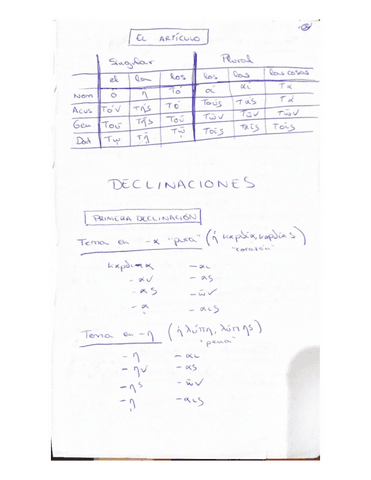 EL ARTÍCULO
Singular Plural
el la los los las las cosas
Nom ὁ ἡ τό οἱ αἱ τά
Acus τόν τής τό τούς τάς τά
Gen τοῦ τῆς τοῦ τῶν τῶν τῶν
Dat τῷ τῇ τῷ τοῖς ταῖς τοῖς
DECLINACIONES
PRIMERA DECLINACIÓN
Tema en -α "pura" (ἡ καρδία, καρδίας)
"corazón"
καρδι-α -αι
-αν -ας
-ας -ῶν
-ᾳ -αις
Tema en -η (ἡ λύπη, λύπης)
"pena"
-η -αι
-ην -ας
-ης -ῶν
-ῃ -αις